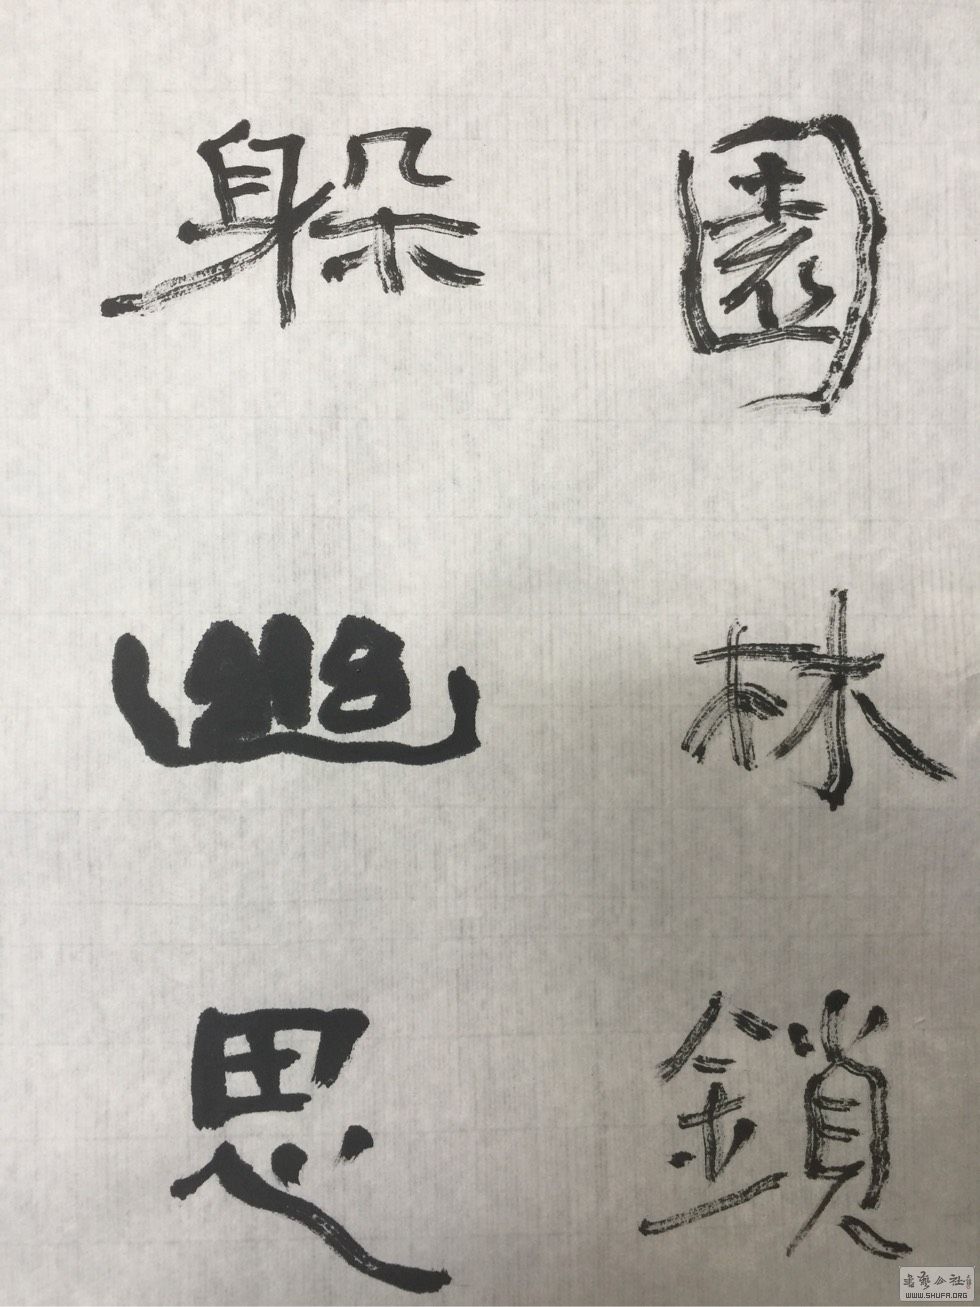 園林鎖
躲幽思
書藝公社
WWW.SHUFA.ORG